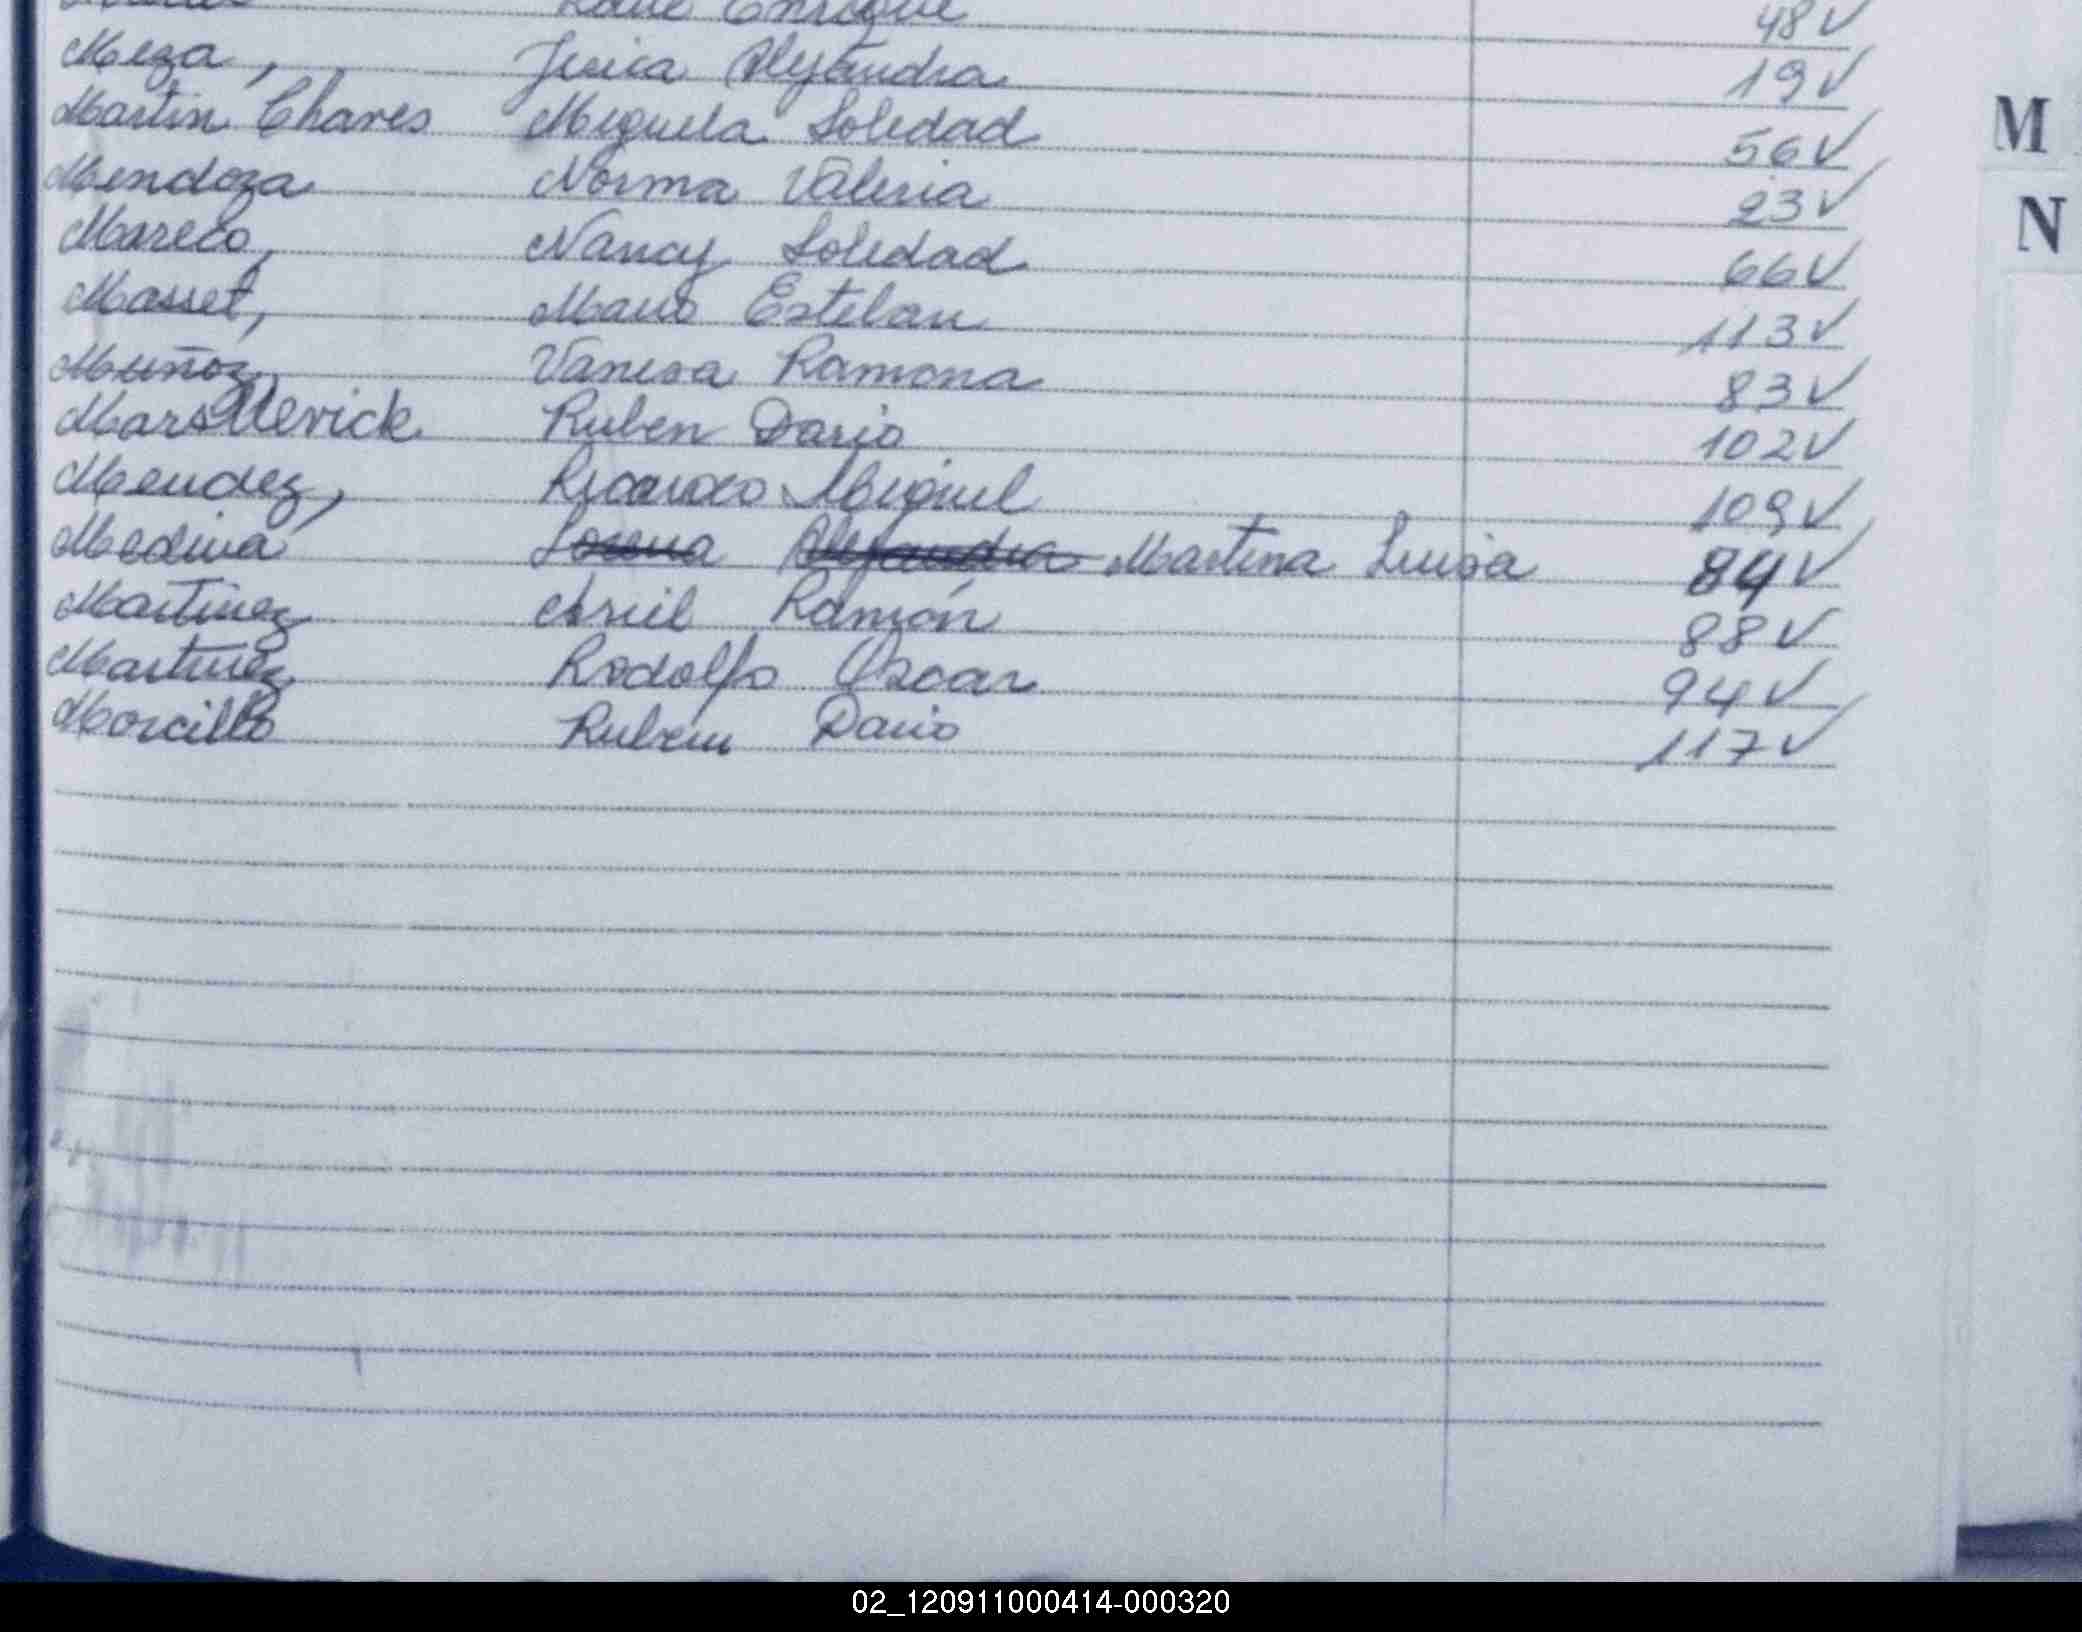 Raul Enrique 48 ✓
Meza, Jesica Alejandra 19 ✓
Martin Chaves Miguela Soledad 56 ✓
Mendoza Norma Valeria 23 ✓
Mareco, Nancy Soledad 66 ✓
Masset, Mario Esteban 113 ✓
Muñoz Vanesa Ramona 83 ✓
Ruben Dario 102 ✓
Mendez, Ricardo Miguel 109 ✓
Medina Lorena Alejandra Martina Luisa 84 ✓
Martinez Ariel Ramón 88 ✓
Martinez Rodolfo Oscar 94 ✓
Morcillo Ruben Dario 117 ✓
M
N
02_120911000414-000320